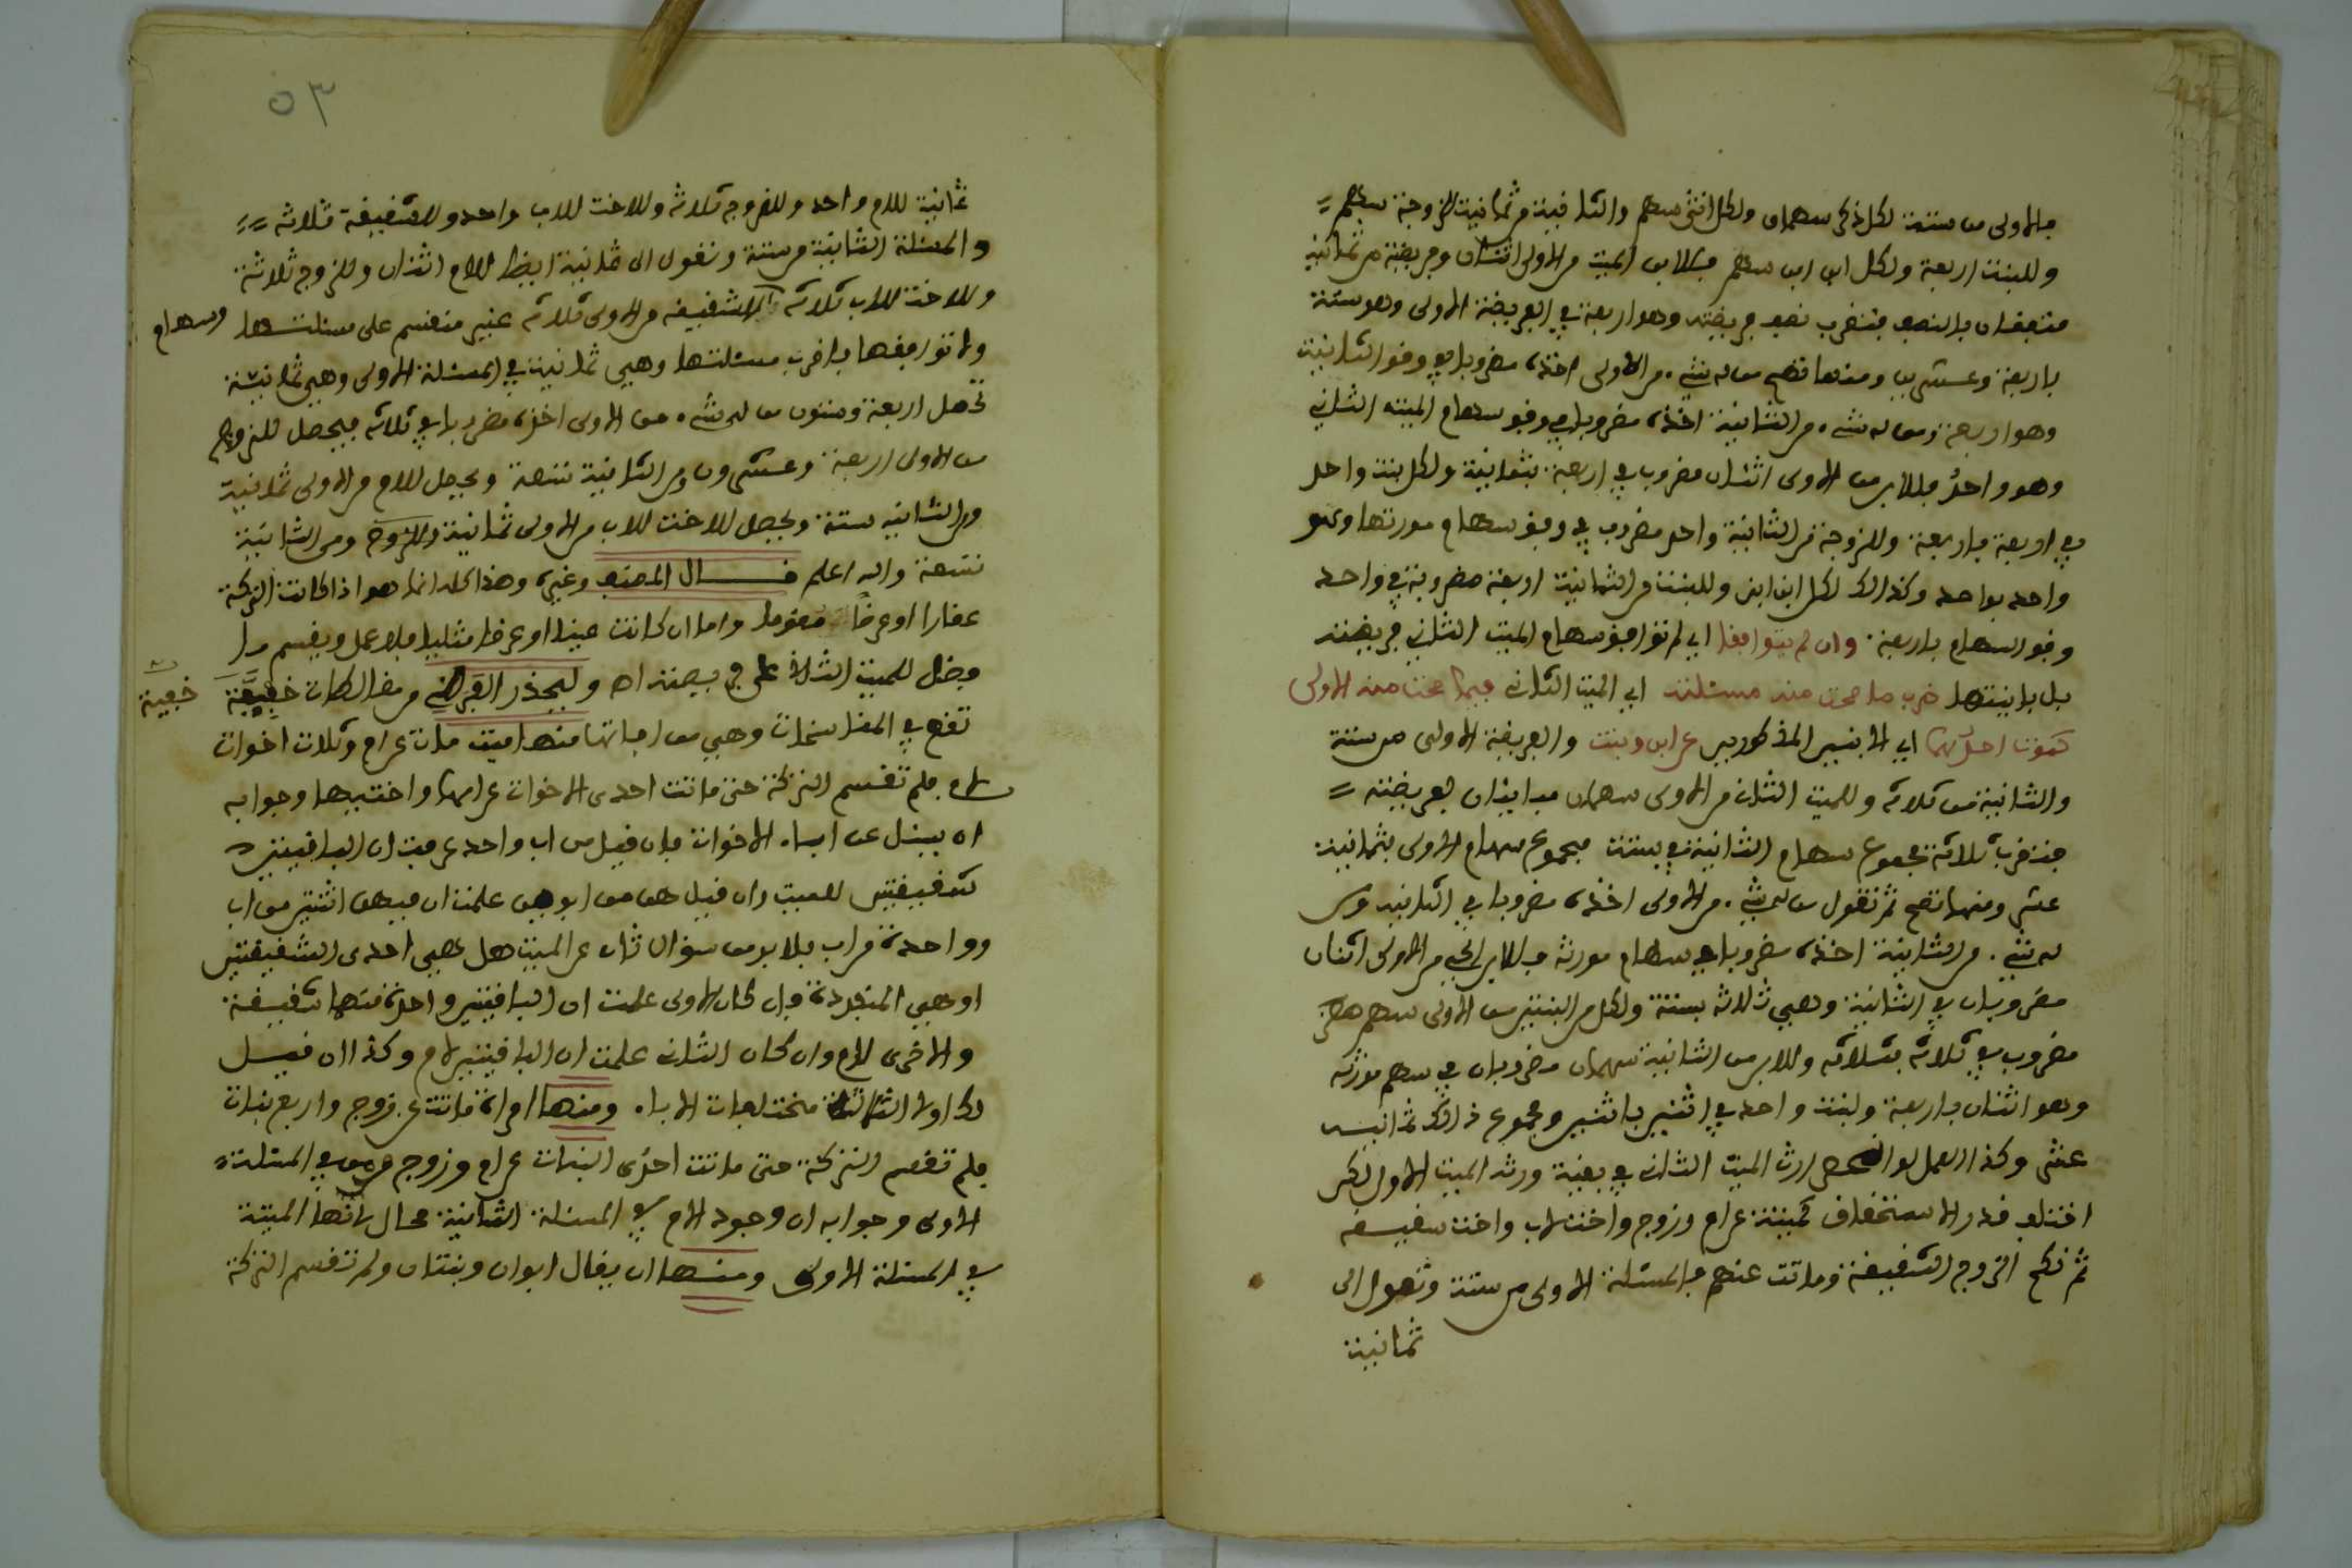 فالاولى من ستة لكل ذكر سهمان ولكل انثى سهم والثانية من ثمانية للزوجة سهم
وللبنت اربعة ولكل ابن ابن سهم فللابن الميت من الاولى اثنان وفريضته من ثمانية
متفقان بالنصف فتضرب نصف فريضته وهو اربعة في الفريضة الاولى وهو ستة
باربعة وعشرين ومنها تصح من له شيء من الاولى اخذه مضروبا في وفق الثانية
وهو اربعة ومن له شيء من الثانية اخذه مضروبا في وفق سهام الميت الثاني
وهو واحد فللابن من الاولى اثنان مضروب في اربعة بثمانية ولكل بنت واحد
في اربعة باربعة وللزوجة من الثانية واحد مضروب في وفق سهام مورثها وهو
واحد بواحد وكذالك لكل ابن ابن وللبنت من الثانية اربعة مضروبة في واحد
وفق السهام باربعة وان لم يتوافقا اي لم توافق سهام الميت الثاني فريضته
بل باينتها ضرب ما صحت منه مسئلته اي الميت الثاني فيما صحت منه الاولى
كموت احدهما اي الابنين المذكورين عن ابن وبنت والفريضة الاولى من ستة
والثانية من ثلاثة وللميت الثاني من الاولى سهمان مباينان لفريضته
فتضرب ثلاثة مجموع سهام الثانية في ستة مجموع سهام الاولى بثمانية
عشر ومنها تصح ثم تقول من له شيء من الاولى اخذه مضروبا في الثانية ومن
له شيء من الثانية اخذه مضروبا في سهام مورثه فللابن الحي من الاولى اثنان
مضروبان في الثانية وهي ثلاثة بستة ولكل من البنتين من الاولى سهم
مضروب في ثلاثة بثلاثة وللابن من الثانية سهمان مضروبان في سهم مورثه
وهو اثنان باربعة ولبنت واحد في اثنين باثنين ومجموع ذالك ثمانية
عشر وكذا العمل لو انحصر ارث الميت الثاني في بقية ورثة الميت الاول لكن
اختلف قدر الاستحقاق كميتة عن ام وزوج واخت لاب واخت شقيقة
ثم نكح الزوج الشقيقة وماتت عنهم فالمسئلة الاولى من ستة وتعول الى
ثمانية
٥٣
ثمانية للام واحد وللزوج ثلاثة وللاخت للاب واحد وللشقيقة ثلاثة
والمسئلة الثانية من ستة وتعول الى ثمانية ايضا للام اثنان وللزوج ثلاثة
وللاخت للاب ثلاثة وسهام الشقيقة من الاولى ثلاثة غير منقسم على مسئلتها
ولا توافقها فاضرب مسئلتها وهي ثمانية في المسئلة الاولى وهي ثمانية
تحصل اربعة وستون من له شيء من الاولى اخذه مضروبا في ثلاثة فيحصل للزوج
من الاولى اربعة وعشرون ومن الثانية تسعة ويحصل للام من الاولى ثمانية
ومن الثانية ستة ويحصل للاخت للاب من الاولى ثمانية وللزوج ومن الثانية
تسعة والله اعلم قال المصنف وغيره وهذا كله انما هو اذا كانت التركة
عقارا او عرضا مقوما واما ان كانت عينا او عرضا مثليا فلا عمل ويقسم ما
حصل للميت الثاني على فريضته اه وليحذر الفرضي من مغالطات خفية
تقع في المناسخات وهي من افاتها منها ميت مات عن ام وثلاث اخوات
فلم تقسم التركة حتى ماتت احدى الاخوات عن امها واختيها وجوابه
ان يسئل عن اباء الاخوات فان قيل من اب واحد عرفت ان الباقيتين
شقيقتين للميت وان قيل هن من ابوين علمت ان فيهن اثنتين من اب
وواحدة من اب فلا بد من سؤال ثان عن الميت هل هي احدى الشقيقتين
او هي المنفردة فان كان الاولى علمت ان الباقيتين واحدة منهما شقيقة
والاخرى لام وان كان الثاني علمت ان الباقيتين لام وكذا ان قيل
منختلفات الاباء ومنها امراة ماتت عن زوج واربع بنات
فلم تقسم التركة حتى ماتت احدى البنات عن ام وزوج في المسئلة
الاولى وجوابه ان وجود الام في المسئلة الثانية محال لانها الميتة
في المسئلة الاولى ومنها ان يقال ابوان وبنتان ولم تقسم التركة
خفية